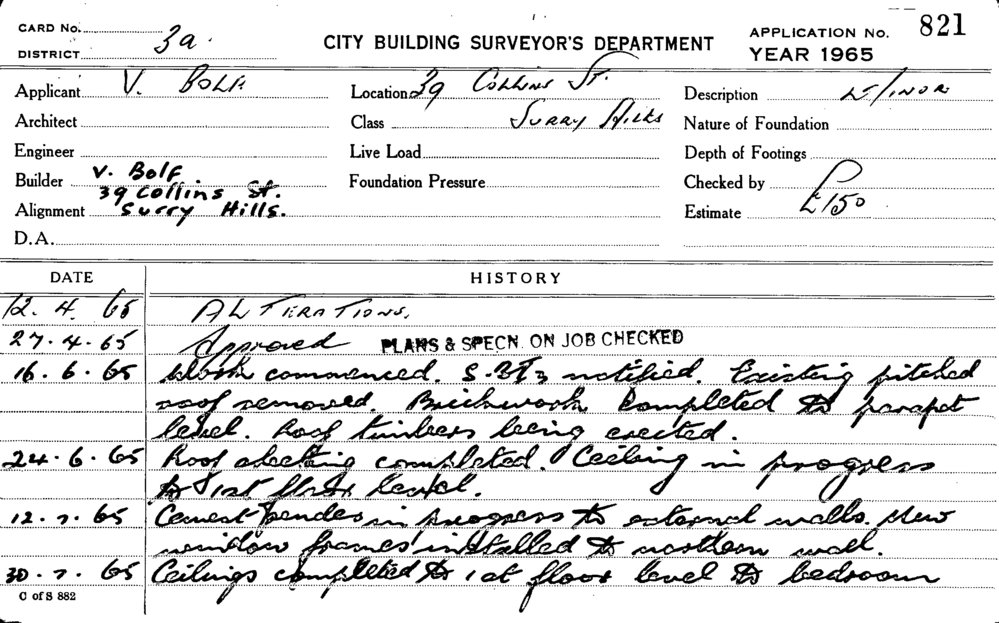 CARD No.
DISTRICT 3a.
CITY BUILDING SURVEYOR'S DEPARTMENT
APPLICATION No. 821
YEAR 1965
Applicant V. BOLF
Location 39 COLLINS ST.
Description MINOR
Architect
Class SURRY HILLS
Nature of Foundation
Engineer
Live Load
Depth of Footings
Builder V. Bolf
39 Collins St.
Foundation Pressure
Checked by
Alignment Surry Hills.
Estimate £150
D.A.
DATE HISTORY
12. 4. 65 ALTERATIONS.
27.4.65 Approved PLANS & SPECN. ON JOB CHECKED
16.6.65 Work commenced. notified. Existing pitched
roof removed. Brickwork completed to parapet
level. Roof timbers being erected.
24.6.65 Roof sheeting completed. Ceiling in progress
to 1st floor level.
12.7.65 Cement render in progress to external walls. New
window frames installed to northern wall.
30.7.65 Ceilings completed to 1st floor level to bedroom
C of S 882